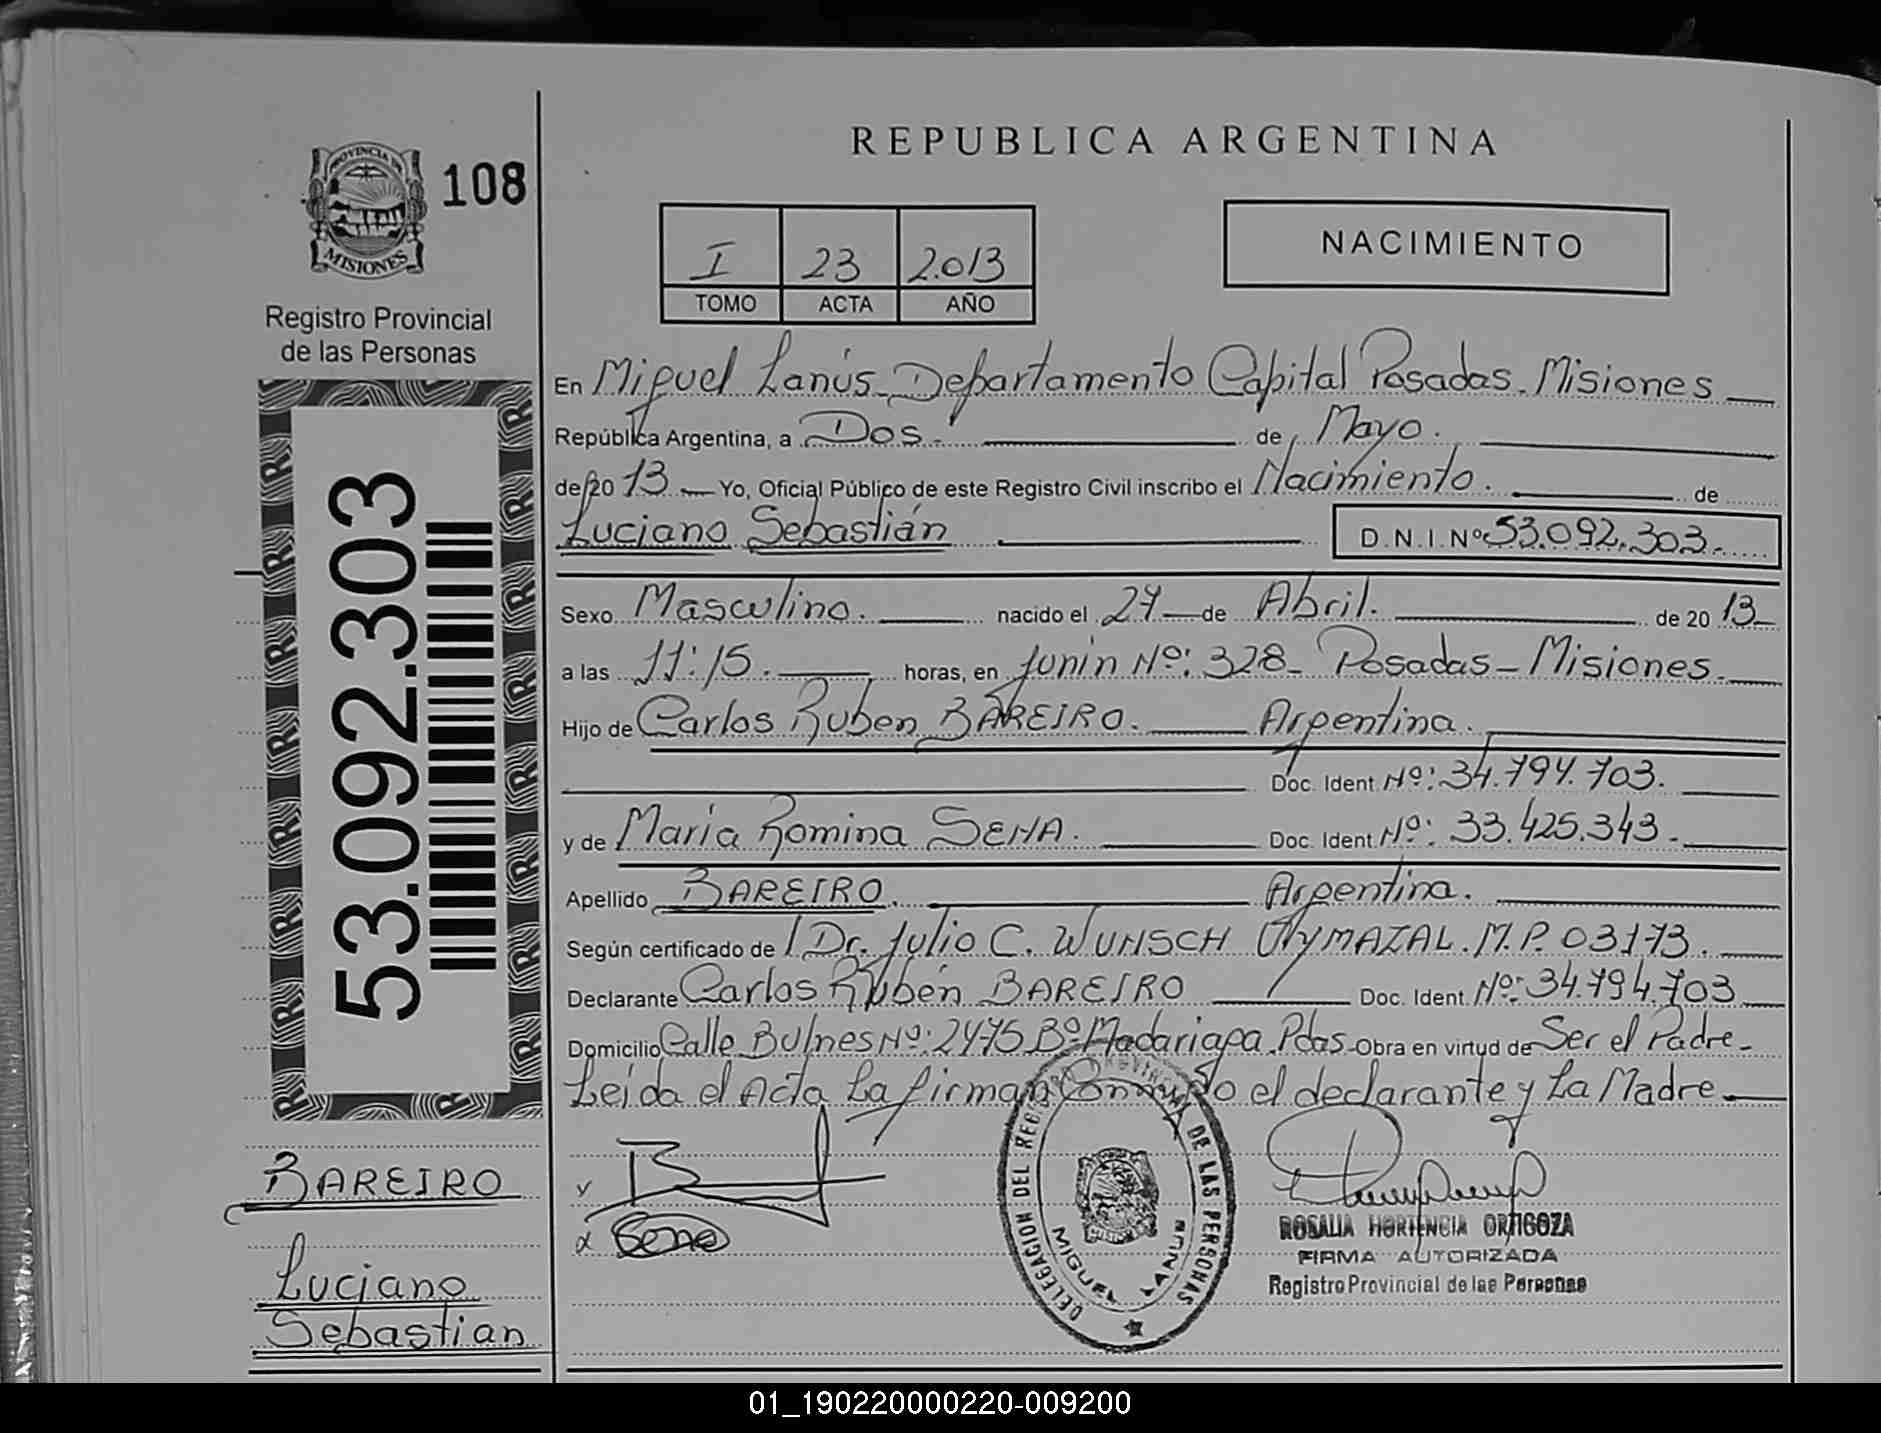 REPUBLICA ARGENTINA
PROVINCIA DE
MISIONES
108
Registro Provincial
de las Personas
I 23 2.013
TOMO ACTA AÑO
NACIMIENTO
En Miguel Lanús. Departamento Capital Posadas. Misiones
República Argentina, a Dos. de Mayo.
de 20 13 Yo, Oficial Público de este Registro Civil inscribo el Nacimiento. de
Luciano Sebastián D.N.I.Nº 53.092.303.
53.092.303
Sexo Masculino. nacido el 27 de Abril. de 20 13
a las 11:15. horas, en Junin Nº: 328 - Posadas - Misiones.
Hijo de Carlos Ruben BAREIRO. Argentina.
Doc. Ident. Nº: 34.794.703.
y de María Romina SENA. Doc. Ident. Nº: 33.425.343.
Apellido BAREIRO. Argentina.
Según certificado de Dr. Julio C. WUNSCH M.P. 03173.
Declarante Carlos Rubén BAREIRO Doc. Ident. Nº: 34.794.703
Domicilio Calle Bulnes Nº: 2475 Bº Madariaga. Pdas. Obra en virtud de Ser el Padre -
Leída el Acta La firman Conmigo el declarante y La Madre
BAREIRO
Luciano
Sebastian
Sena
DELEGACION DEL REGISTRO PROVINCIAL DE LAS PERSONAS
MIGUEL LANUS
ROSALIA HORTENCIA ORTIGOZA
FIRMA AUTORIZADA
Registro Provincial de las Personas
01_190220000220-009200